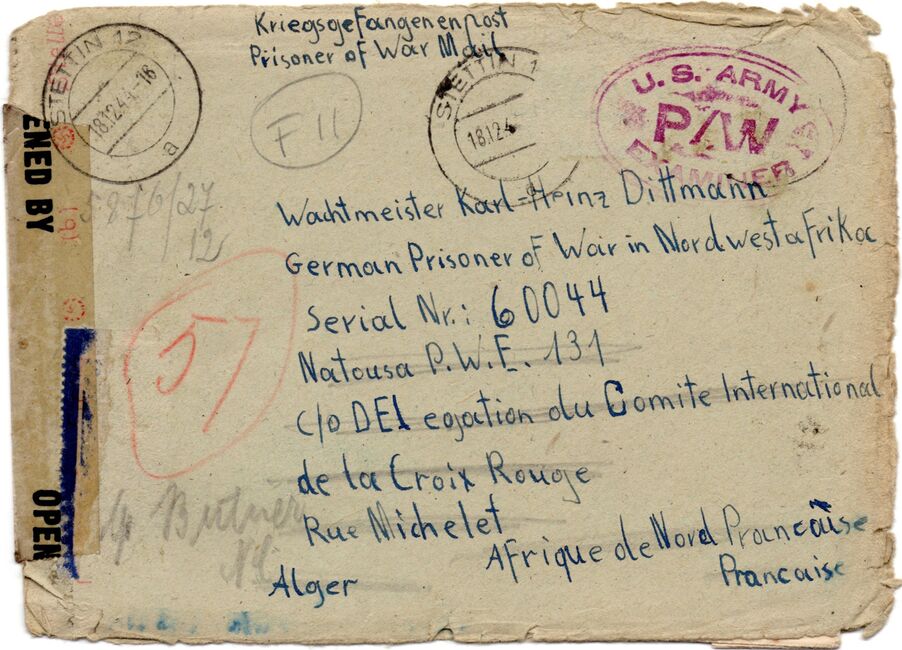 Kriegsgefangenenpost
Prisoner of War Mail
STETTIN 12
18.12.4 -16
a
STETTIN 1
18.12.4
U.S. ARMY
P/W
EXAMINER
F 11
5876/27
12
57
ENED BY
OPEN
Wachtmeister Karl=Heinz Dittmann
German Prisoner of War in Nordwestafrika
Serial Nr.: 60044
Natousa P.W.E. 131
c/o DEL egation du Comite International
de la Croix Rouge
Rue Michelet
Afrique de Nord Prancaise
Prancaise
Alger